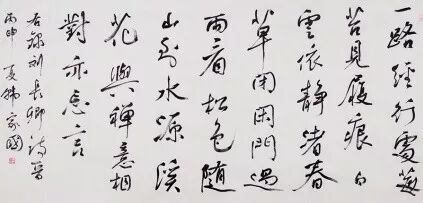 一路經行處莓
苔見履痕白
雲依靜渚春
草閉閑門過
雨看松色隨
山到水源溪
花與禪意相
對亦忘言
右錄劉長卿詩
丙申夏